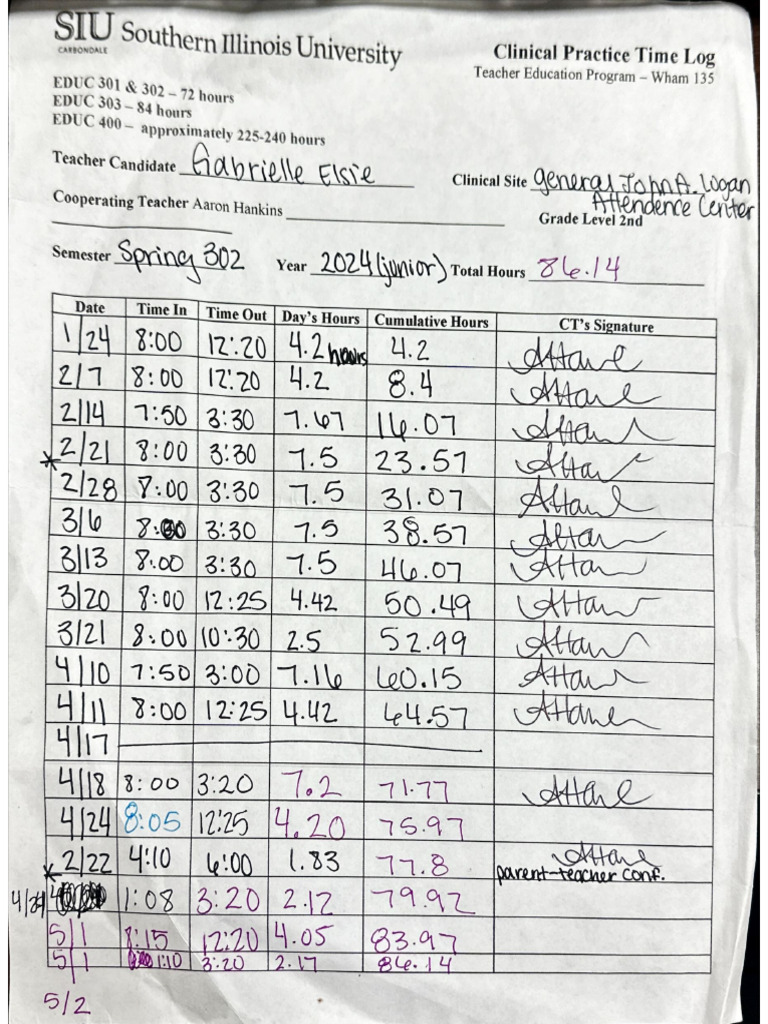 SIU Southern Illinois University
CARBONDALE
Clinical Practice Time Log
Teacher Education Program – Wham 135
EDUC 301 & 302 – 72 hours
EDUC 303 – 84 hours
EDUC 400 – approximately 225-240 hours
Teacher Candidate Gabrielle Elsie
Clinical Site general John A. Logan
Attendence Center
Cooperating Teacher Aaron Hankins
Grade Level 2nd
Semester Spring 302 Year 2024 (junior) Total Hours 86.14
Date Time In Time Out Day's Hours Cumulative Hours CT's Signature
1/24 8:00 12:20 4.2 hours 4.2
2/7 8:00 12:20 4.2 8.4
2/14 7:50 3:30 7.67 16.07
* 2/21 8:00 3:30 7.5 23.57
2/28 8:00 3:30 7.5 31.07
3/6 8:00 3:30 7.5 38.57
3/13 8:00 3:30 7.5 46.07
3/20 8:00 12:25 4.42 50.49
3/21 8:00 10:30 2.5 52.99
4/10 7:50 3:00 7.16 60.15
4/11 8:00 12:25 4.42 64.57
4/17
4/18 8:00 3:20 7.2 71.77
4/24 8:05 12:25 4.20 75.97
* 2/22 4:10 6:00 1.83 77.8
parent-teacher conf.
1:08 3:20 2.12 79.92
5/1 8:15 12:20 4.05 83.97
5/1 1:10 3:20 2.17 86.14
5/2